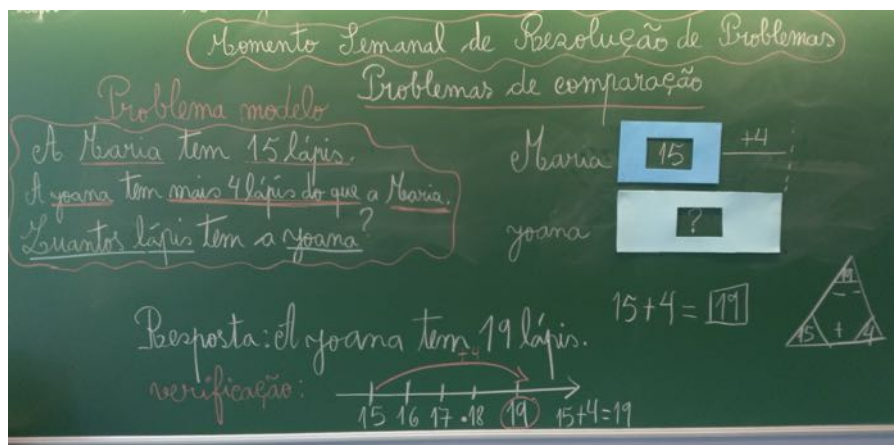 Momento Semanal de Resolução de Problemas
Problemas de comparação
Problema modelo
A Maria tem 15 lápis.
A Joana tem mais 4 lápis do que a Maria.
Quantos lápis tem a Joana?
Maria 15 +4
Joana ?
15+4= 19
19
- -
15 + 4
Resposta: A Joana tem 19 lápis.
verificação:
+4
15 16 17 18 19 15+4=19